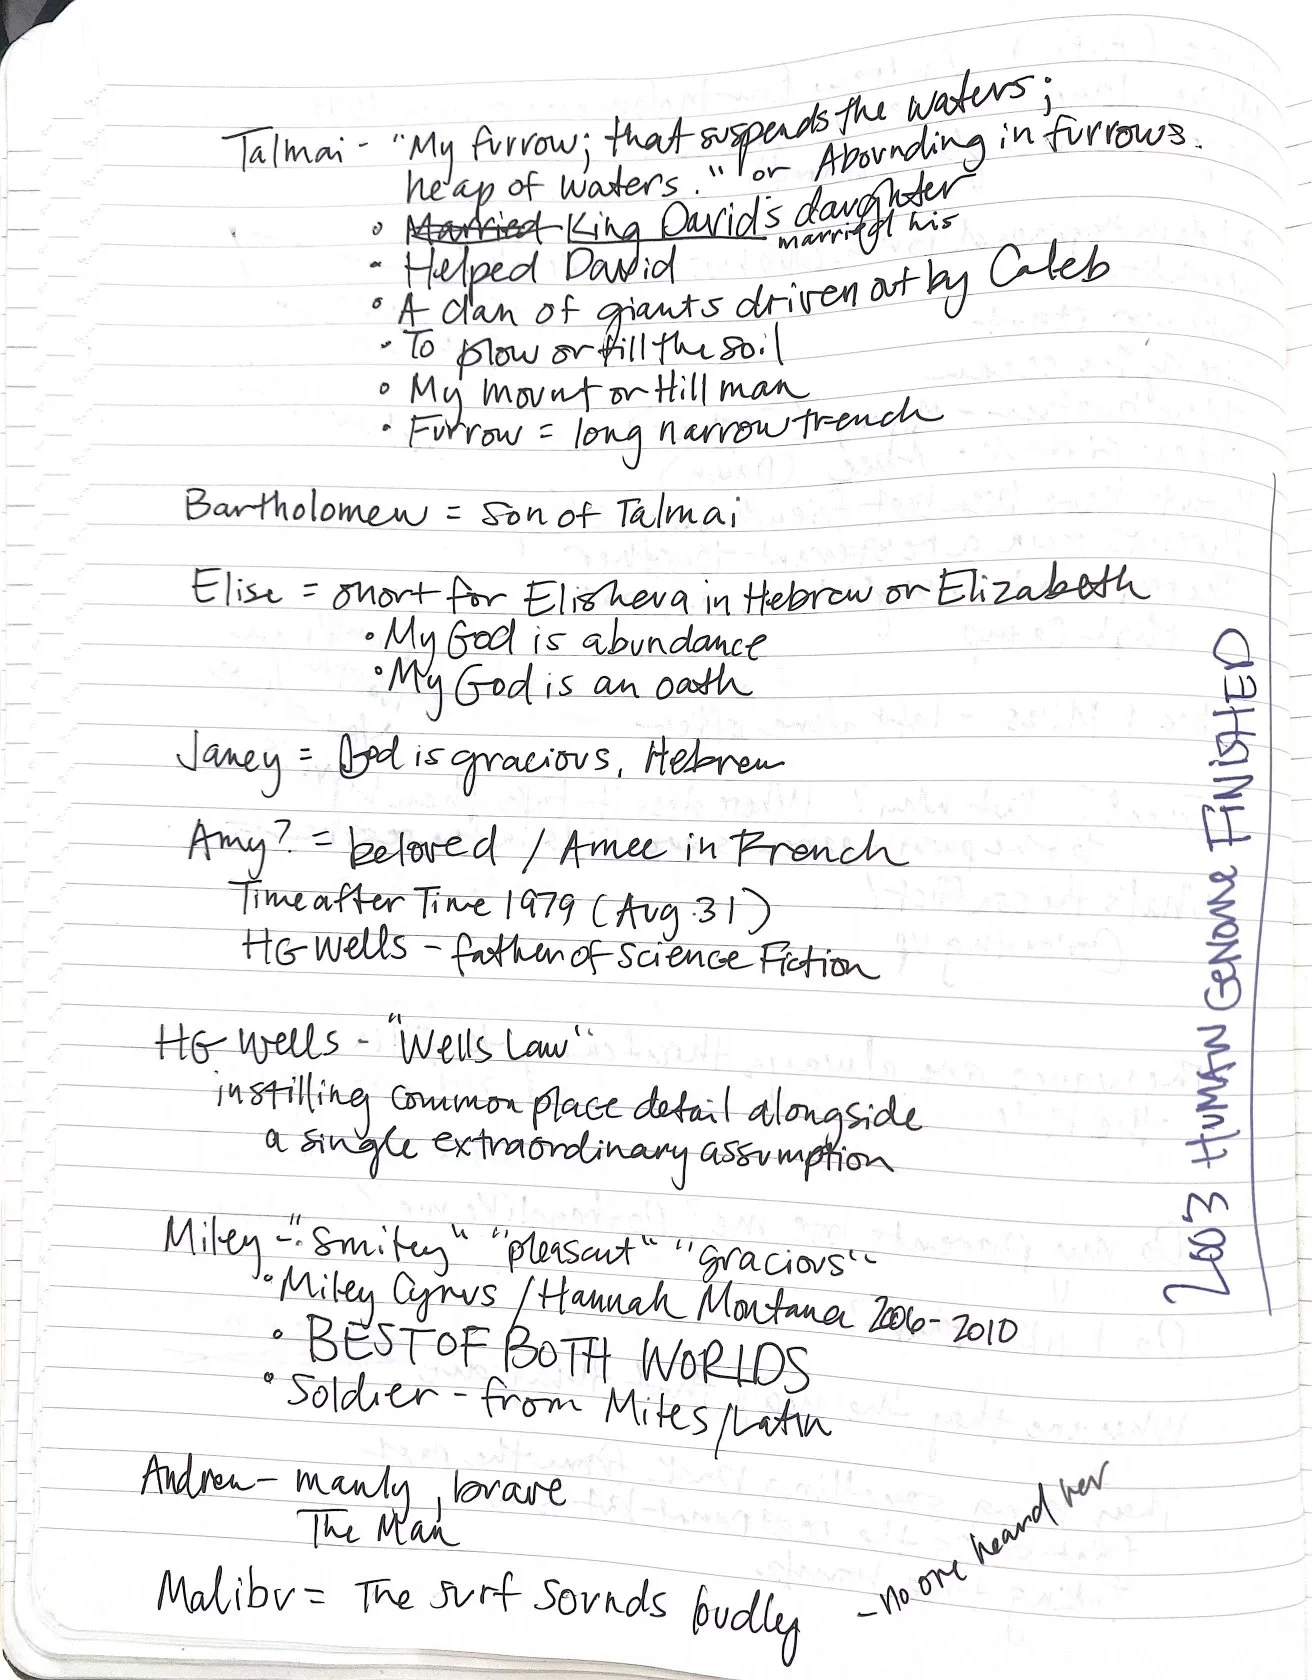 Talmai - "My furrow; that suspends the waters;
heap of waters." or Abounding in furrows.
• Married King David's daughter
married his
- Helped David
• A clan of giants driven out by Caleb
• To plow or till the soil
• My mount or Hill man
• Furrow = long narrow trench
Bartholomew = son of Talmai
Elise = short for Elisheva in Hebrew or Elizabeth
• My God is abundance
• My God is an oath
Janey = God is gracious, Hebrew
Amy? = beloved / Amee in French
Time after Time 1979 (Aug. 31)
HG Wells - father of Science Fiction
HG Wells - "Wells Law"
instilling common place detail alongside
a single extraordinary assumption
Miley - "Smiley" "pleasant" "gracious"
• Miley Cyrus / Hannah Montana 2006-2010
• BEST OF BOTH WORLDS
• Soldier - from Miles/Latin
Andrew - manly, brave
The Man
Malibu = The surf sounds loudly
- no one heard her
2003 HUMAN GENOME FINISHED